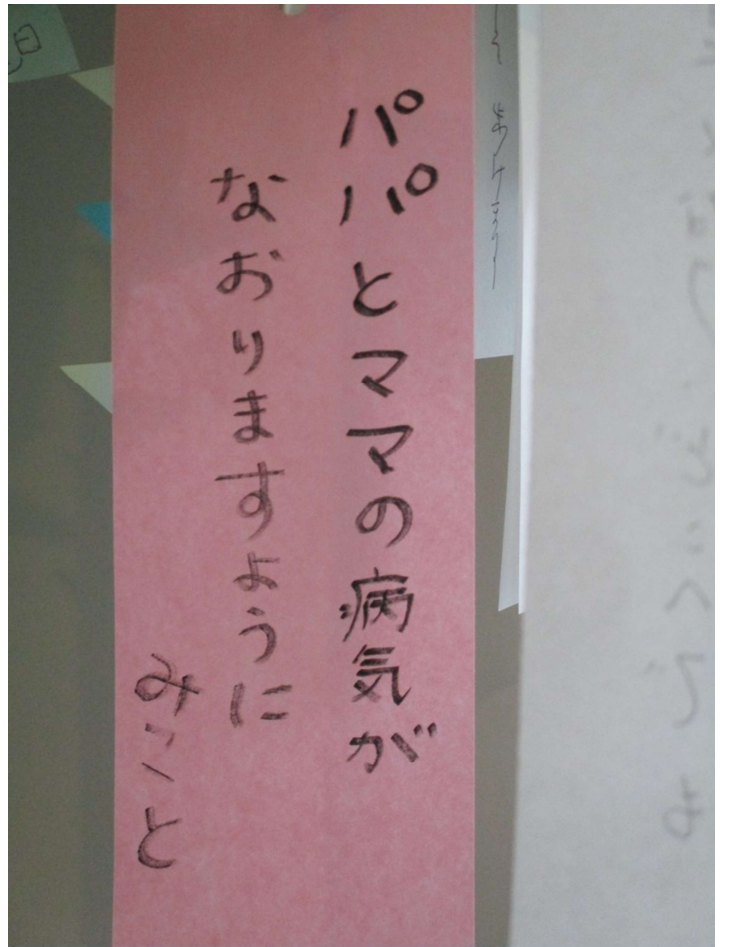 パパとママの病気が
なおりますように
みこと